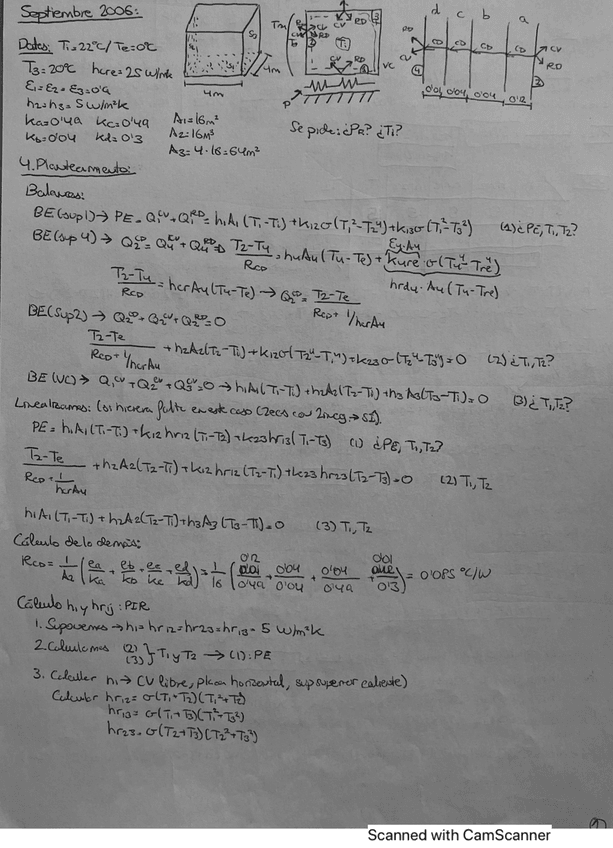 Septiembre 2006:
Datos: Ti=22°C/ Te=0°C
T3=20°C hcre=25 W/m²K
ε1=ε2=ε3=0'9
h2=h3=5 W/m²K
ka=0'49 kc=0'49
kb=0'04 kd=0'3
A1=16m²
A2=16m²
A3=4·16=64m²
4m
4m
Ti
VC
d c b a
CV
RD
CD CD CD CD
0'01 0'04 0'04 0'12
Se pide: ¿PE? ¿T1?
4. Planteamiento:
Balances:
BE(sup1)→ PE=Q1^CV+Q1^RD=h1A1(T1-Ti)+k12σ(T1⁴-T2⁴)+k13σ(T1⁴-T3⁴) (1)¿PE,T1,T2?
BE(sup 4)→ Q2^CD=Q4^CV+Q4^RD → (T2-T4)/RCD=h4A4(T4-Te)+k4re·σ(T4⁴-Tre⁴)
ε4·A4
hrd4·A4(T4-Tre)
(T2-T4)/RCD=hcrA4(T4-Te)→Q2^CD=(T2-Te)/(RCD+1/hcrA4)
BE(Sup2)→ Q2^CD+Q2^CV+Q2^RD=0
(T2-Te)/(RCD+1/hcrA4)+h2A2(T2-Ti)+k12σ(T2⁴-T1⁴)+k23σ(T2⁴-T3⁴)=0 (2)¿T1,T2?
BE(VC)→ Q1^CV+Q2^CV+Q3^CV=0→h1A1(T1-Ti)+h2A2(T2-Ti)+h3A3(T3-Ti)=0 (3)¿T1,T2?
Linealizamos: (si hiciera falta en este caso (2ecs con 2incg→SI).
PE=h1A1(T1-Ti)+k12hr12(T1-T2)+k23hr13(T1-T3) (1) ¿PE,T1,T2?
(T2-Te)/(RCD+1/hcrA4)+h2A2(T2-Ti)+k12hr12(T2-T1)+k23hr23(T2-T3)=0 (2)T1,T2
h1A1(T1-Ti)+h2A2(T2-Ti)+h3A3(T3-Ti)=0 (3)T1,T2
Cálculo de lo demás:
RCD=1/A2(ea/ka+eb/kb+ec/kc+ed/kd)=1/16(0'12/0'49+0'04/0'04+0'04/0'49+0'01/0'3)=0'085 °C/W
Cálculo h1 y hrij: PIR
1. Suponemos→h1=hr12=hr23=hr13=5 W/m²K
2. Calculamos (2)(3)} T1 y T2 → (1):PE
3. Calcular h1→CV libre, placa horizontal, sup superior caliente)
Calcular hr12=σ(T1+T2)(T1²+T2²)
hr13=σ(T1+T3)(T1²+T3²)
hr23=σ(T2+T3)(T2²+T3²)
1
Scanned with CamScanner